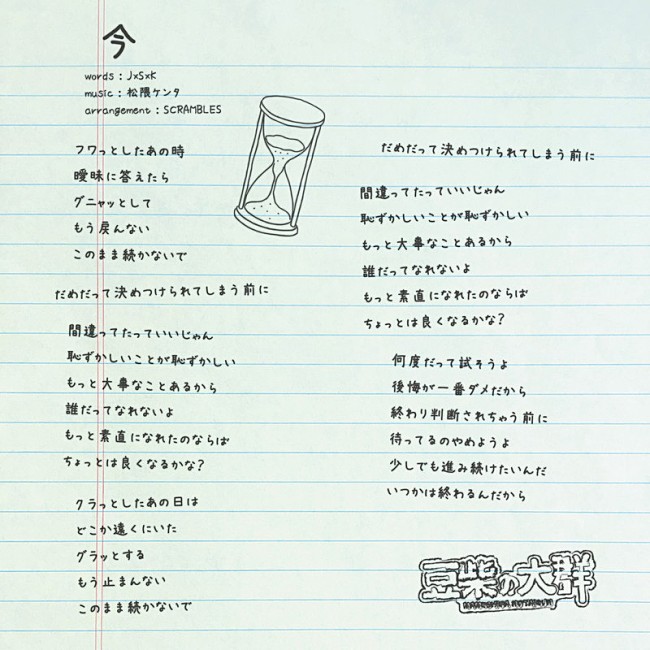 今
words : JxSxK
music : 松隈ケンタ
arrangement : SCRAMBLES
フワっとしたあの時
曖昧に答えたら
グニャッとして
もう戻んない
このまま続かないで
だめだって決めつけられてしまう前に
間違ってたっていいじゃん
恥ずかしいことが恥ずかしい
もっと大事なことあるから
誰だってなれないよ
もっと素直になれたのならば
ちょっとは良くなるかな?
クラっとしたあの日は
どこか遠くにいた
グラッとする
もう止まんない
このまま続かないで
だめだって決めつけられてしまう前に
間違ってたっていいじゃん
恥ずかしいことが恥ずかしい
もっと大事なことあるから
誰だってなれないよ
もっと素直になれたのならば
ちょっとは良くなるかな?
何度だって試そうよ
後悔が一番ダメだから
終わり判断されちゃう前に
待ってるのやめようよ
少しでも進み続けたいんだ
いつかは終わるんだから
豆柴の大群